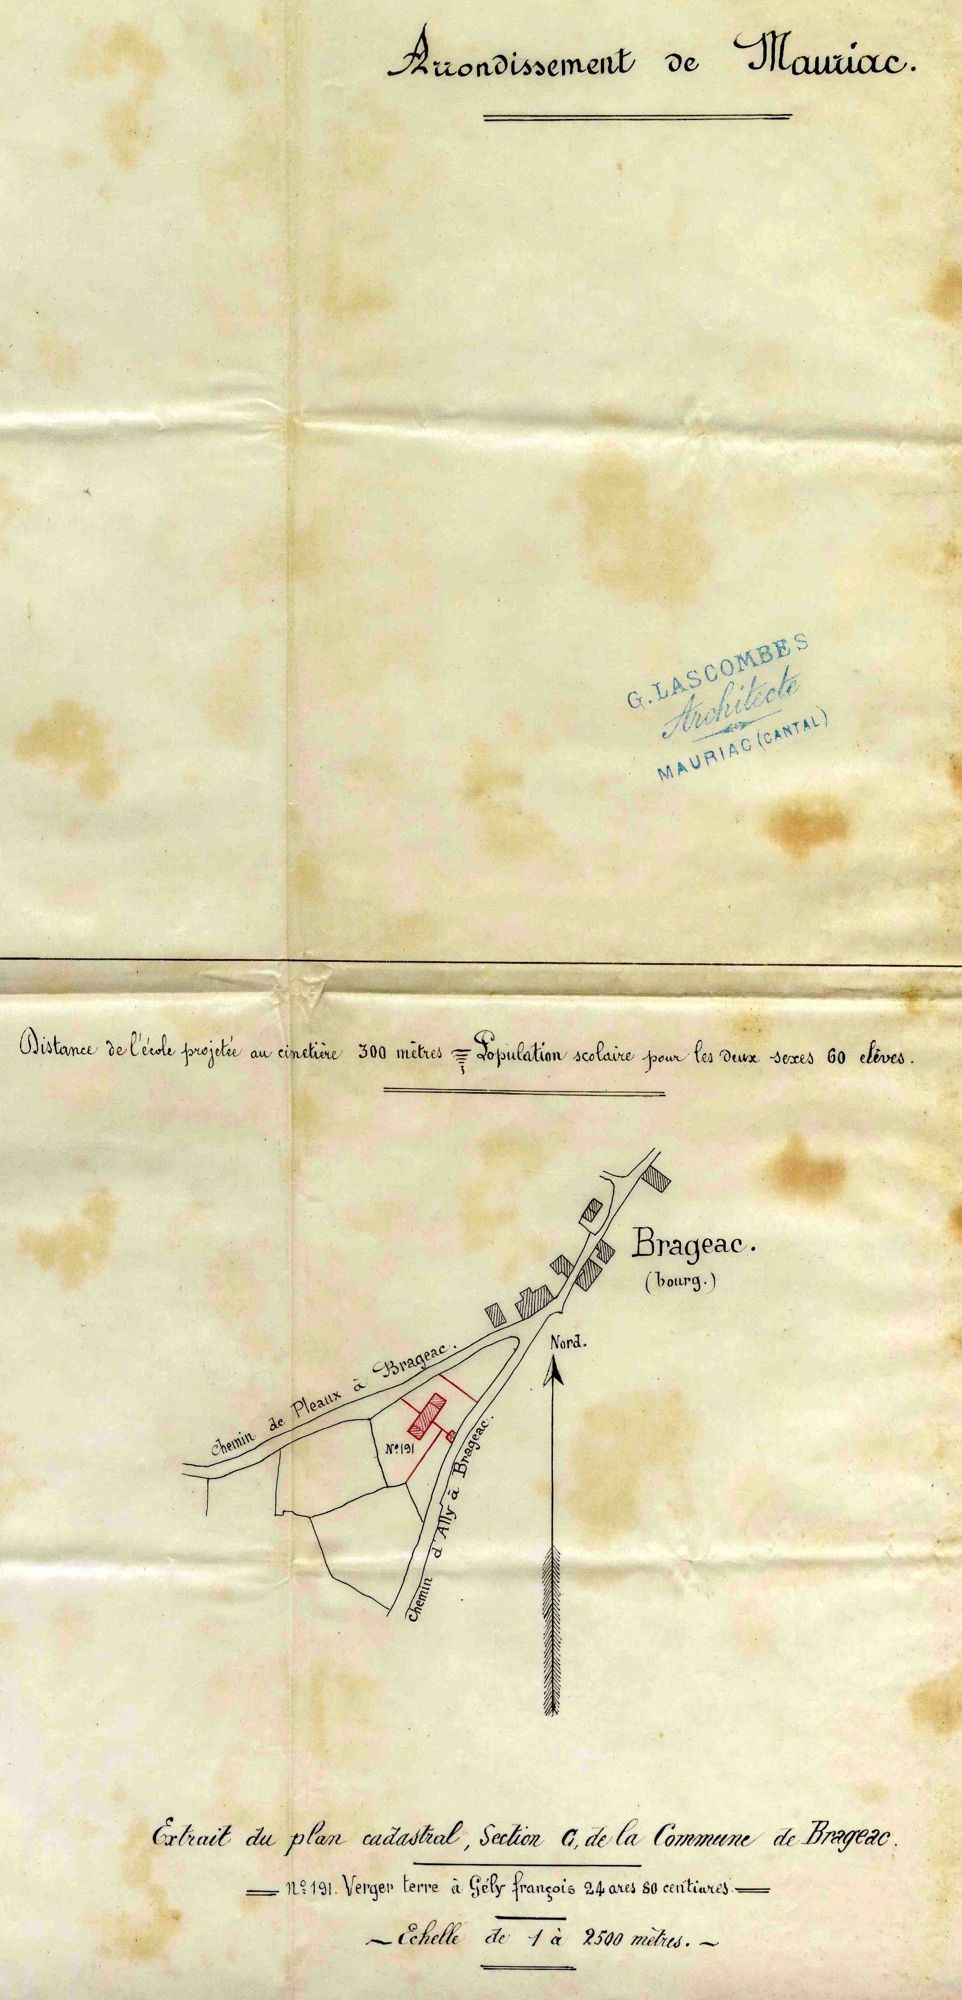 Arrondissement de Mauriac.
G. LASCOMBES
Architecte
MAURIAC (CANTAL)
Distance de l'école projetée au cimetière 300 mètres = Population scolaire pour les deux sexes 60 elèves.
Brageac.
(bourg.)
Nord.
Chemin de Pleaux à Brageac.
N° 191
Chemin d'Ally à Brageac.
Extrait du plan cadastral, Section G, de la Commune de Brageac.
N° 191. Verger terre à Gély françois 24 ares 80 centiares.
Echelle de 1 à 2500 mètres.